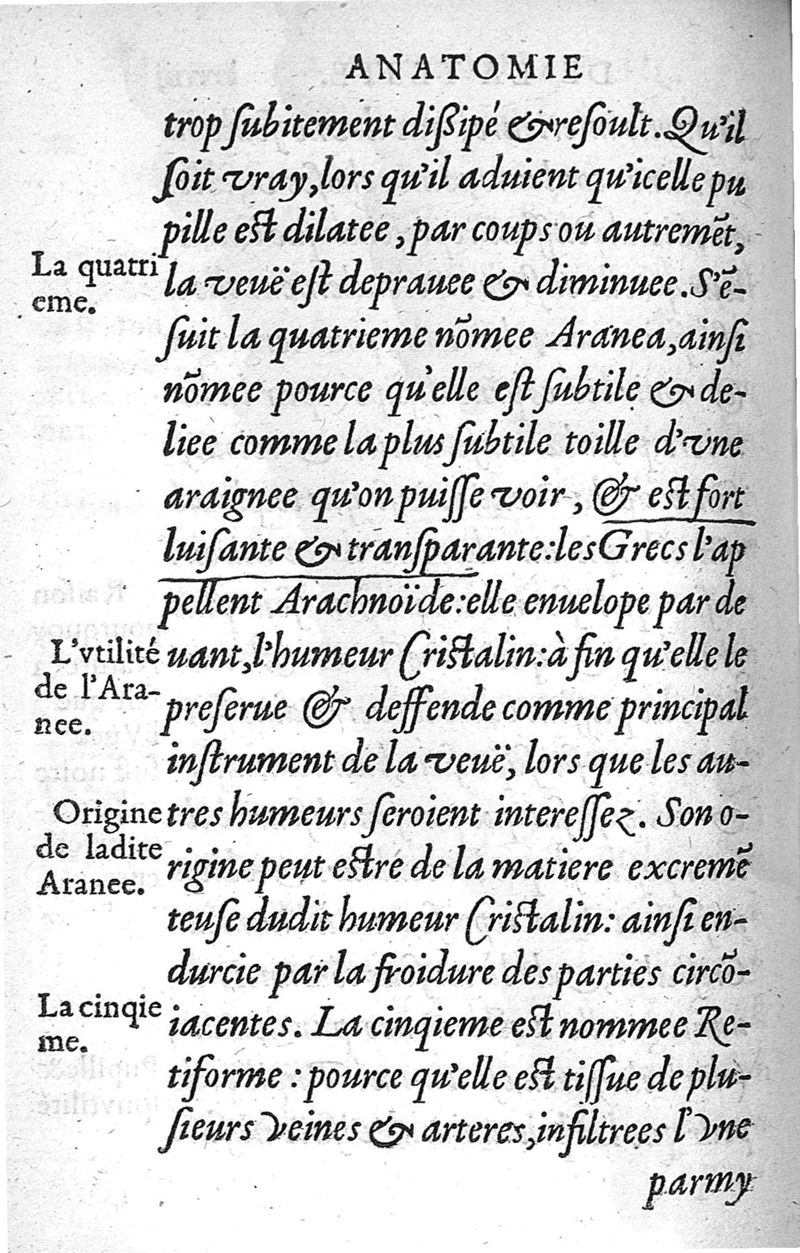 ANATOMIE
trop ſubitement diſſipé & reſoult. Qu'il
ſoit vray, lors qu'il aduient qu'icelle pu
pille eſt dilatee, par coups ou autremẽt,
La quatri
eme.
la veuë eſt deprauee & diminuee. S'ẽ-
ſuit la quatrieme nõmee Aranea, ainſi
nõmee pource qu'elle eſt ſubtile & de-
liee comme la plus ſubtile toille d'vne
araignee qu'on puiſſe voir, & eſt fort
luiſante & tranſparante: les Grecs l'ap
pellent Arachnoïde: elle enuelope par de
L'vtilité
de l'Ara-
nee.
uant, l'humeur Criſtalin: à fin qu'elle le
preſerue & deffende comme principal
inſtrument de la veuë, lors que les au-
Origine
de ladite
Aranee.
tres humeurs ſeroient intereſſez. Son o-
rigine peut eſtre de la matiere excremẽ
teuſe dudit humeur Criſtalin: ainſi en-
durcie par la froidure des parties circõ-
La cinqie
me.
iacentes. La cinqieme eſt nommee Re-
tiforme: pource qu'elle eſt tiſſue de plu-
ſieurs veines & arteres, infiltrees l'vne
parmy